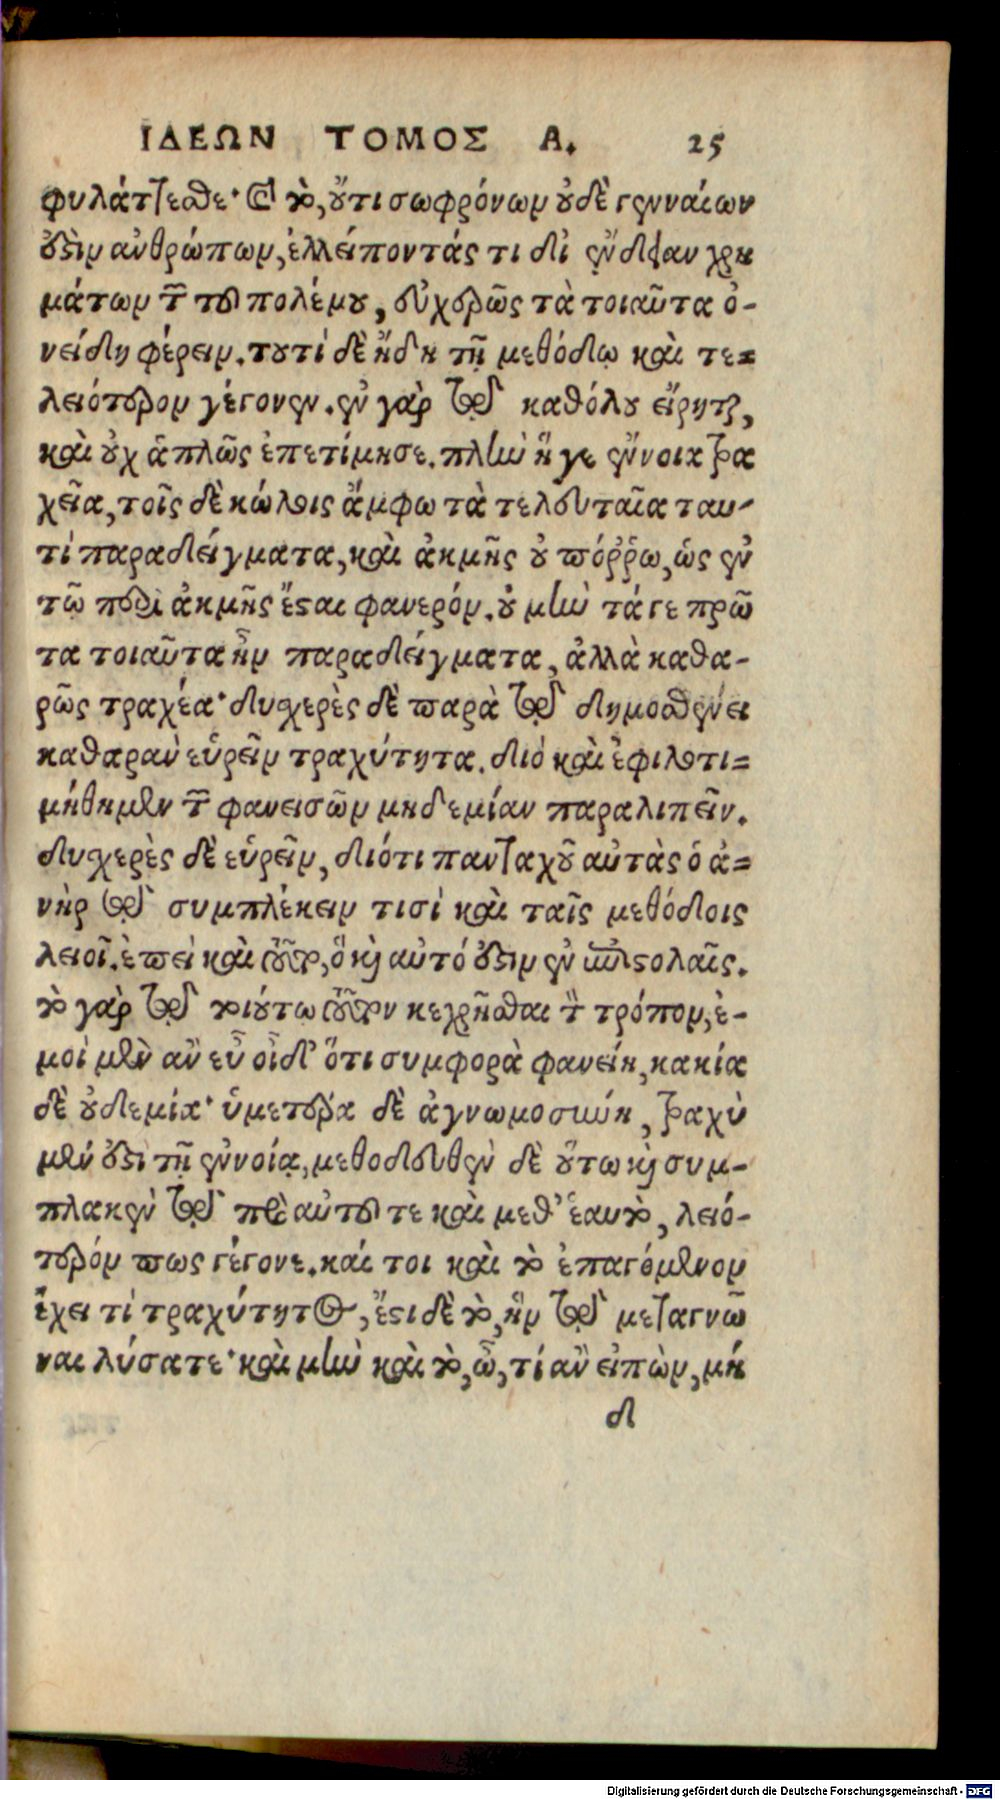 ΙΔΕΩΝ ΤΟΜΟΣ Α. 25
φυλάττεσθε· καὶ τὸ, οὔτι σωφρόνων οὐδὲ γενναίων
ἐστὶν ἀνθρώπων, ἐλλείποντάς τι δι' ἔνδειαν χρη
μάτων τῶν τοῦ πολέμου, εὐχερῶς τὰ τοιαῦτα ὀ-
νείδη φέρειν. τουτὶ δὲ ἤδη τῇ μεθόδῳ καὶ τε-
λειότερον γέγονεν. ἐν γὰρ τῷ καθόλου εἴρηται,
καὶ οὐχ ἁπλῶς ἐπετίμησε. πλὴν ἥ γε ἔννοια τρα
χεῖα, τοῖς δὲ κώλοις ἄμφω τὰ τελευταῖα ταυ-
τὶ παραδείγματα, καὶ ἀκμῆς οὐ πόῤῥω, ὡς ἐν
τῷ περὶ ἀκμῆς ἔσται φανερόν. οὐ μὴν τά γε πρῶ
τα τοιαῦτα ἦν παραδείγματα, ἀλλὰ καθα-
ρῶς τραχέα· δυσχερὲς δὲ παρὰ τῷ δημοσθένει
καθαρὰν εὑρεῖν τραχύτητα. διὸ καὶ ἐφιλοτι-
μήθημεν τῶν φανεισῶν μηδεμίαν παραλιπεῖν.
δυσχερὲς δὲ εὑρεῖν, διότι πανταχοῦ αὐτὰς ὁ ἀ-
νὴρ τῷ συμπλέκειν τισὶ καὶ ταῖς μεθόδοις
λειοῖ. ἐπεὶ καὶ τοῦτο, ὃ καὶ αὐτό ἐστιν ἐν ἐπιστολαῖς.
τὸ γὰρ τῷ τοιούτω τοῦτον κεχρῆσθαι τὸν τρόπον, ἐ-
μοὶ μὲν ἂν εὖ οἶδ' ὅτι συμφορὰ φανείη, κακία
δὲ οὐδεμία· ὑμετέρα δὲ ἀγνωμοσύνη, τραχὺ
μέν ἐστι τῇ ἐννοίᾳ, μεθοδευθὲν δὲ οὕτω καὶ συμ-
πλακὲν τῷ πρὸ αὐτοῦ τε καὶ μεθ' ἑαυτὸ, λειό-
τερόν πως γέγονε. καί τοι καὶ τὸ ἐπαγόμενον
ἔχει τὶ τραχύτητος, ἔστι δὲ τὸ, ἣν τῷ μεταγνῶ
ναι λύσατε· καὶ μὴν καὶ τὸ, ὦ, τί ἂν εἰπὼν, μή
δ